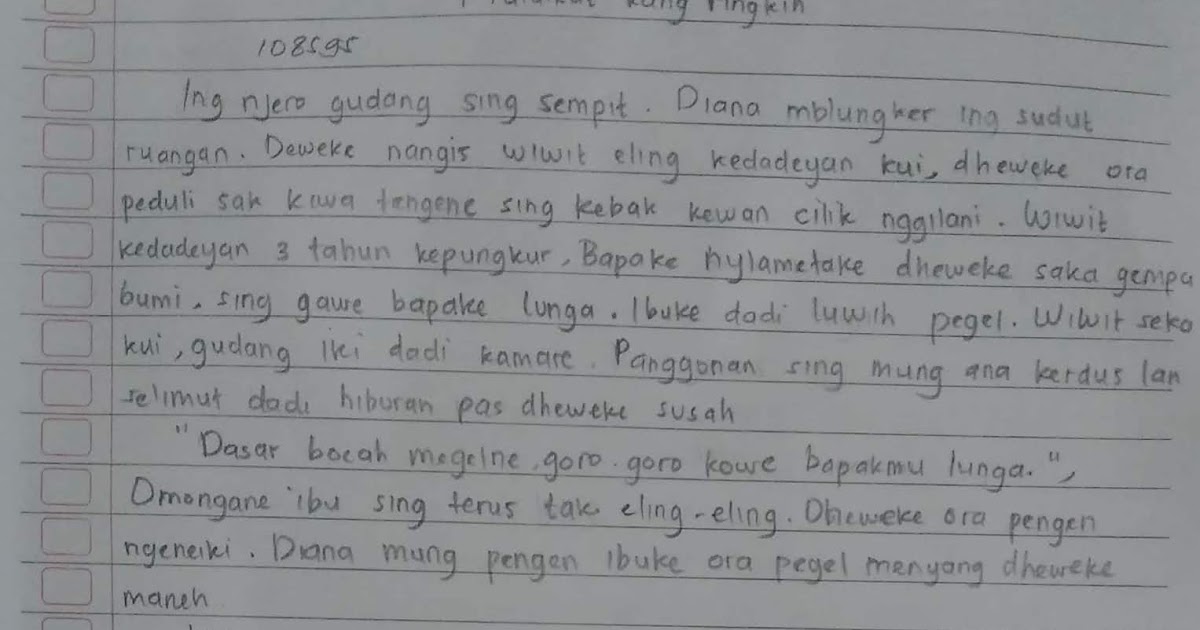 kang ringkih
108595
Ing njero gudang sing sempit. Diana mblungker ing sudut
ruangan. Deweke nangis wiwit eling kedadeyan kui, dheweke ora
peduli sak kiwa tengene sing kebak kewan cilik nggilani. Wiwit
kedadeyan 3 tahun kepungkur, Bapake nylametake dheweke saka gempa
bumi, sing gawe bapake lunga. Ibuke dadi luwih pegel. Wiwit seko
kui, gudang iki dadi kamare. Panggonan sing mung ana kerdus lan
selimut dadi hiburan pas dheweke susah
"Dasar bocah megelne, goro-goro kowe bapakmu lunga.",
Omongane ibu sing terus tak eling-eling. Dheweke ora pengen
ngeneiki. Diana mung pengen ibuke ora pegel menyang dheweke
maneh